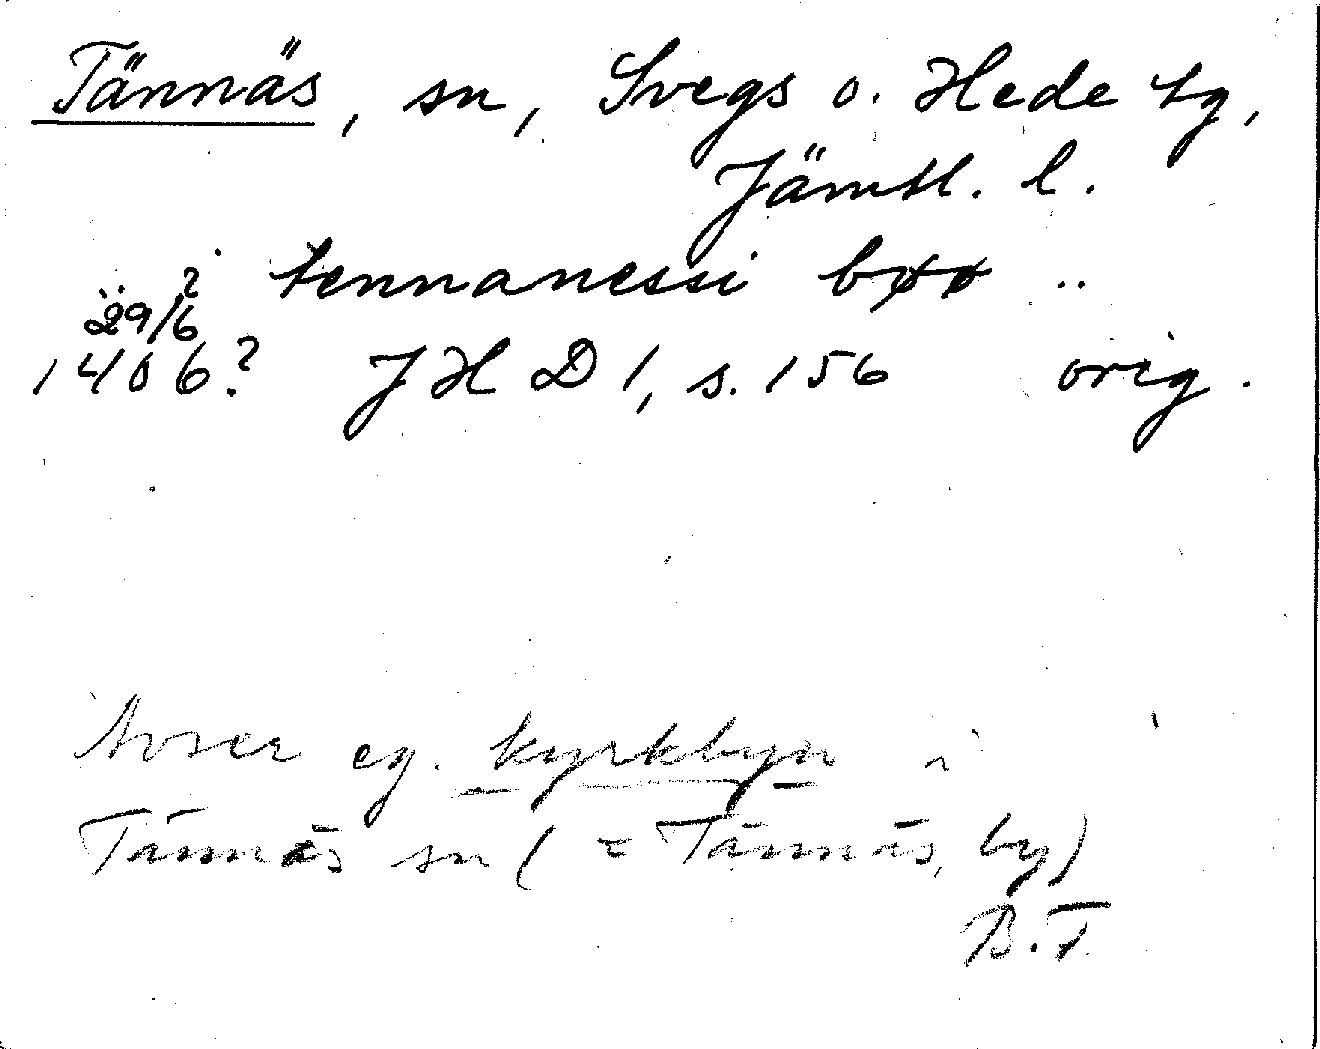 Tännäs, sn, Svegs o. Hede tg,
Jämtl. l.
.. i tennanessi bøø ..
29/6
1406? JHD 1, s. 156 orig.
Avser eg. kyrkbyn i
Tännäs sn (= Tännäs, by)
B.F.